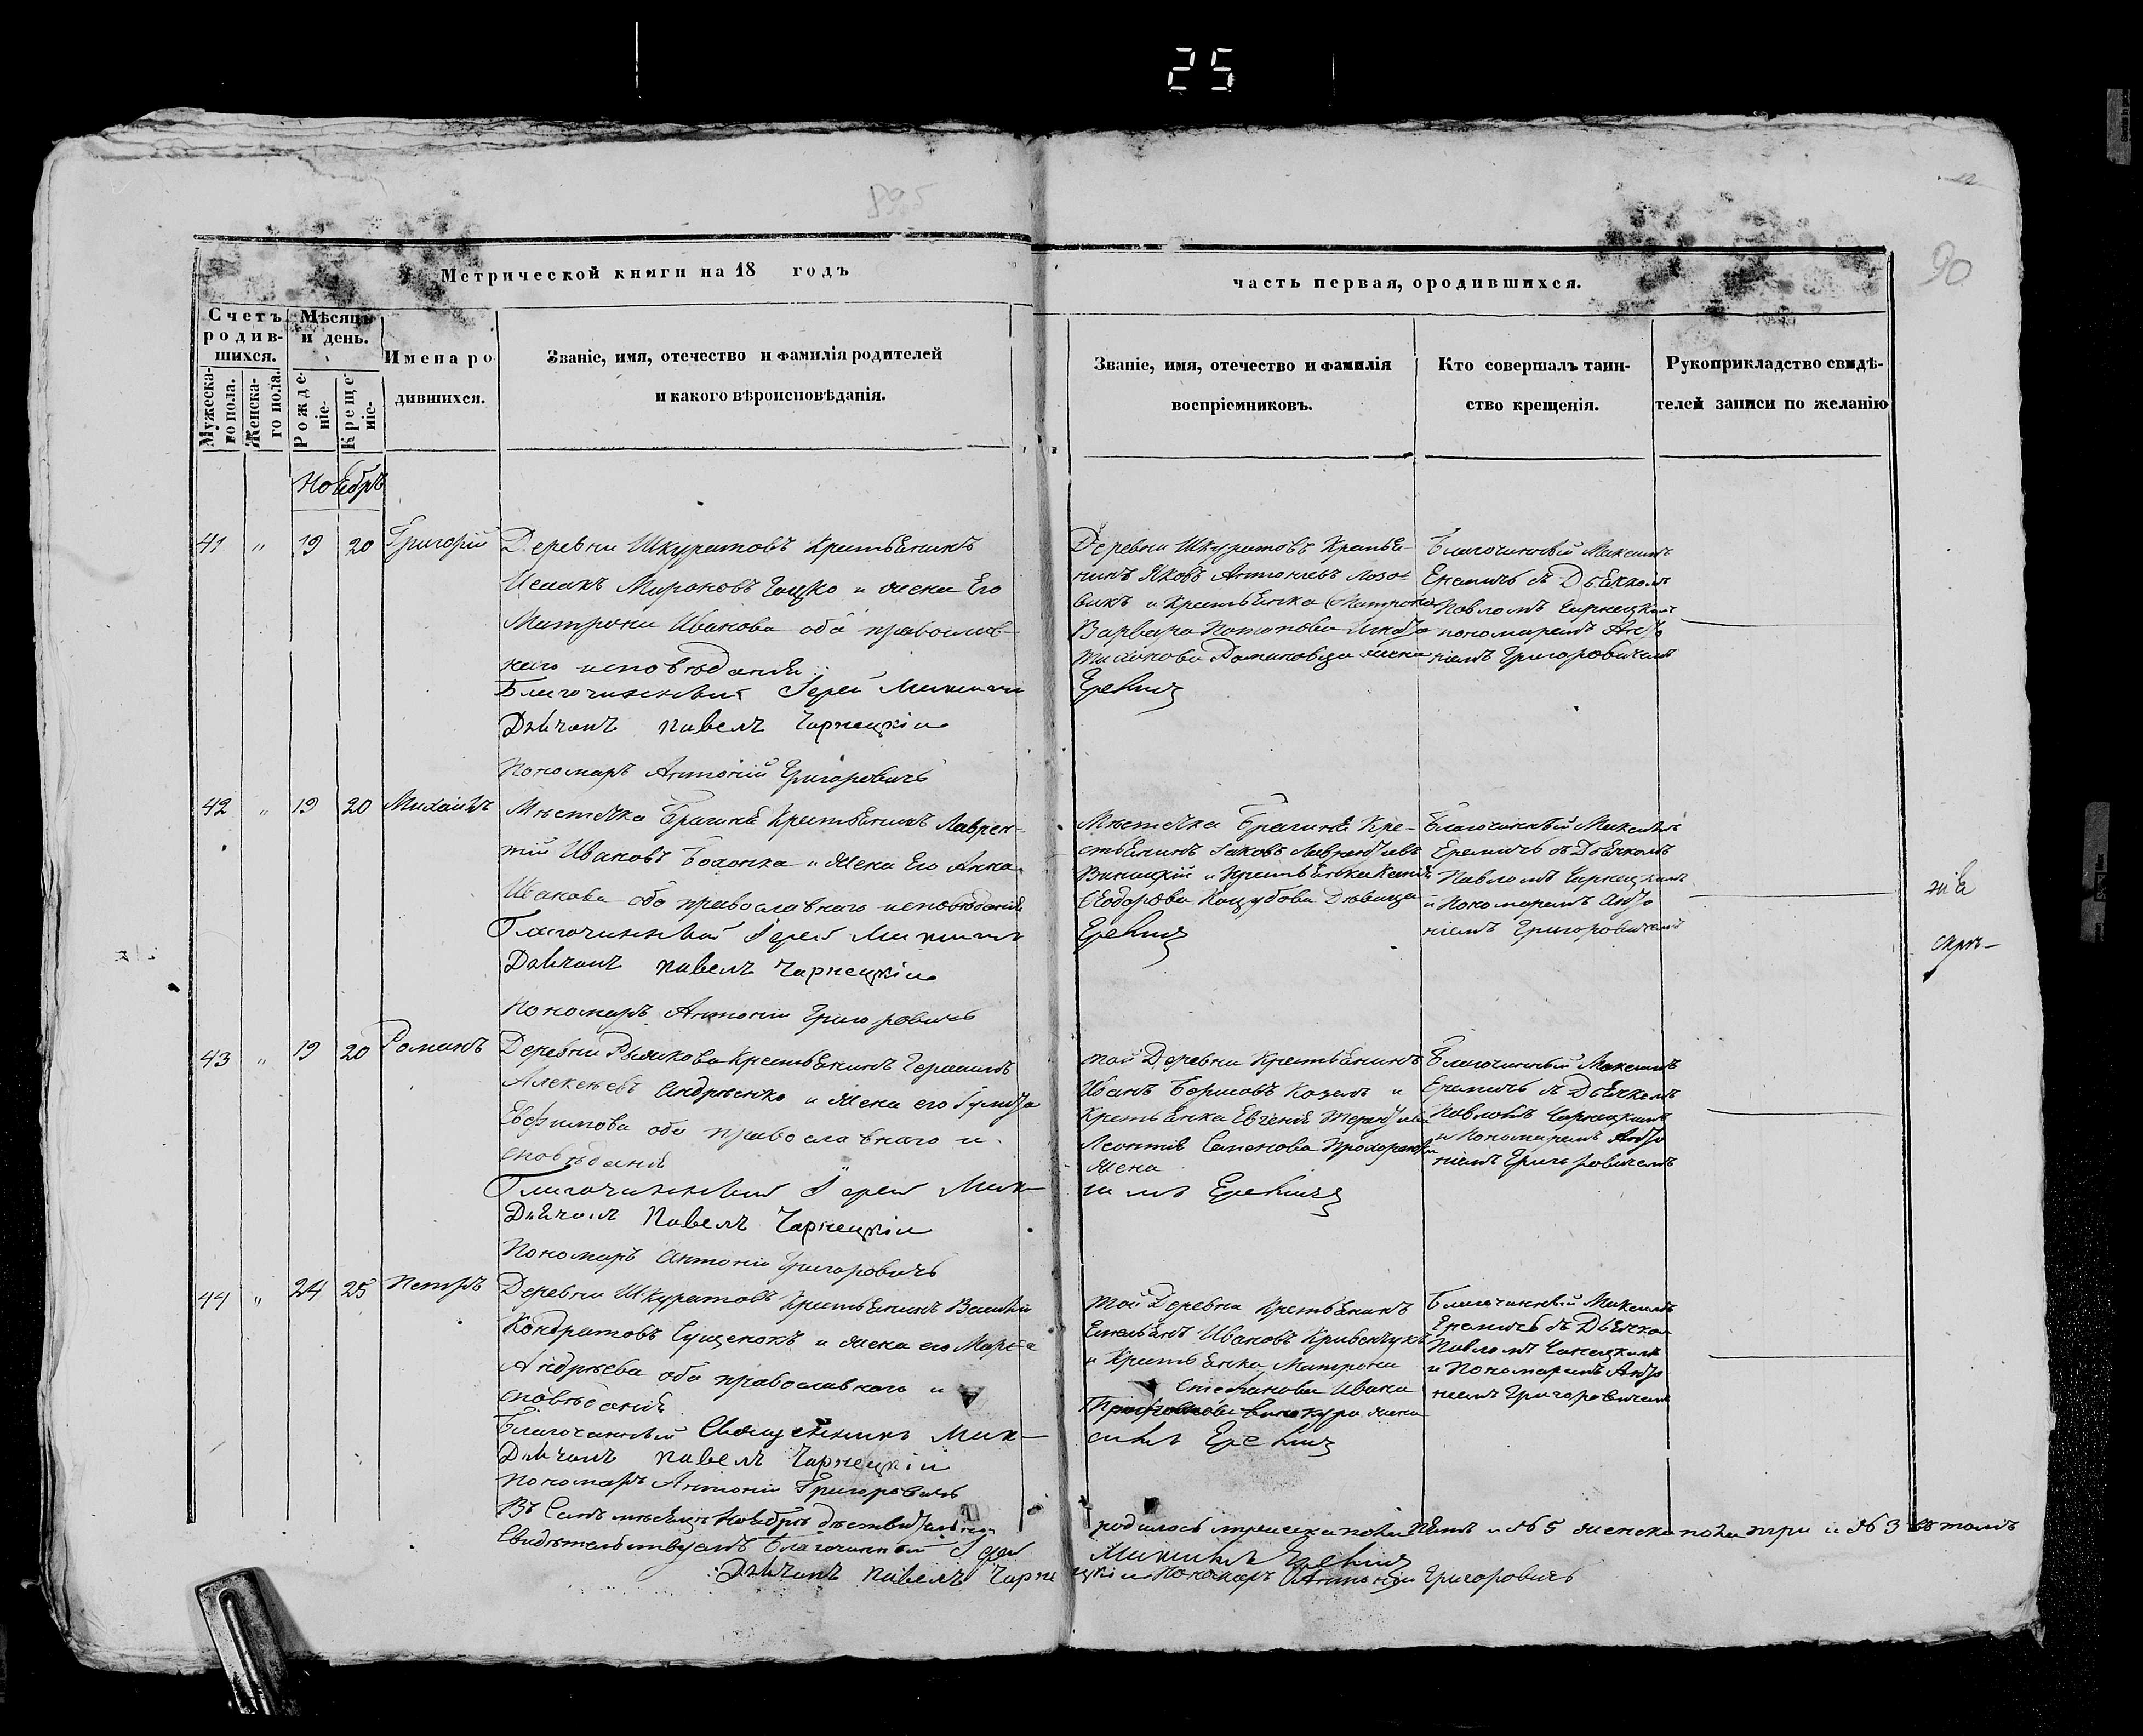 25
895
90
Метрической книги на 18 годъ
часть первая, ородившихся.
Счетъ родив-
шихся.
Мѣсяцъ
и день.
Мужеска-
го пола.
Женска-
го пола.
Рожде-
ніе.
Креще-
ніе.
Имена ро
дившихся.
Званіе, имя, отечество и фамилія родителей
и какого вѣроисповѣданія.
Званіе, имя, отечество и фамилія
воспріемниковъ.
Кто совершалъ таин-
ство крещенія.
Рукоприкладство свидѣ-
телей записи по желанію
Ноябрь
41 " 19 20 Григорій
Деревни Шкуратовъ Крестьянинъ
Мироновъ Гацко и жена Его
Матрона Иванова оба православ-
наго исповѣданія
Благочинный Іерей Максимъ
Дьячокъ Павелъ Чарнецкій
Пономарь Антоній Григоровичъ
Деревни Шкуратовъ Крестья-
нинъ Яковъ Антоніевъ Лозо-
викъ и Крестьянка
Варвара Потапова
Романовца жена
Еремичъ
Благочинный Максимъ
Еремичъ съ Дьячкомъ
Павломъ Чарнецкимъ
пономаремъ Анто
ніемъ Григоровичемъ
42 " 19 20 Михаилъ
Мѣстечка Брагина Крестьянинъ Лаврен-
тій Ивановъ Бохонка и жена Его Анна
Иванова оба православнаго исповѣданія
Благочинный Іерей Максимъ
Дьячокъ Павелъ Чарнецкій
Пономарь Антоній Григоровичъ
Мѣстечка Брагина Кре-
стьянинъ Іаковъ Лаврентіевъ
Виницкій и Крестьянка
Ѳедорова Коцубова Дѣвица
Еремичъ
Благочинный Максимъ
Еремичъ съ Дьячкомъ
Павломъ Чарнецкимъ
и Пономаремъ Анто
ніемъ Григоровичемъ
43 " 19 20 Романъ
Деревни Рыжкова Крестьянинъ Герасимъ
Алексѣевъ Андрѣенко и жена его
Евфимова оба православнаго и-
сповѣданія
Благочинный Іерей Мак-
Дьячокъ Павелъ Чарнецкій
Пономарь Антоній Григоровичъ
той Деревни Крестьянинъ
Иванъ Борисовъ Козелъ и
Крестьянка Евгенія Терентіева
Леонтія Семенова
жена
симъ Еремичъ
Благочинный Максимъ
Еремичъ съ Дьячкомъ
Павломъ Чарнецкимъ
и Пономаремъ Анто
ніемъ Григоровичемъ
44 " 24 25 Петръ
Деревни Шкуратовъ Крестьянинъ Василій
Кондратовъ Сущенокъ и жена его Марѳа
Андрѣева оба православнаго и
сповѣданія
Благочинный Священникъ Мак-
Дьячокъ Павелъ Чарнецкій
Пономарь Антоній Григоровичъ
той Деревни Крестьянинъ
Емельянъ Ивановъ Кривенчукъ
и Крестьянка Матрона
Степанова Ивана
винокура жена
симъ Еремичъ
Благочинный Максимъ
Еремичъ съ Дьячкомъ
Павломъ Чарнецкимъ
и Пономаремъ Анто
ніемъ Григоровичемъ
Въ Семъ мѣсяцѣ Ноябрѣ дѣствительно родилось мужеска пола пять и № 5 женска пола три и № 3 въ томъ
Свидѣтельствуемъ Благочинный Іерей Максимъ Еремичъ
Дьячокъ Павелъ Чарнецкій Пономарь Антоній Григоровичъ